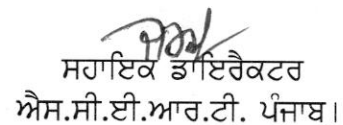 ਸਹਾਇਕ ਡਾਇਰੈਕਟਰ
ਐਸ.ਸੀ.ਈ.ਆਰ.ਟੀ. ਪੰਜਾਬ।